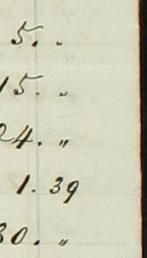 5. "
15. "
24. "
1.39
30. "